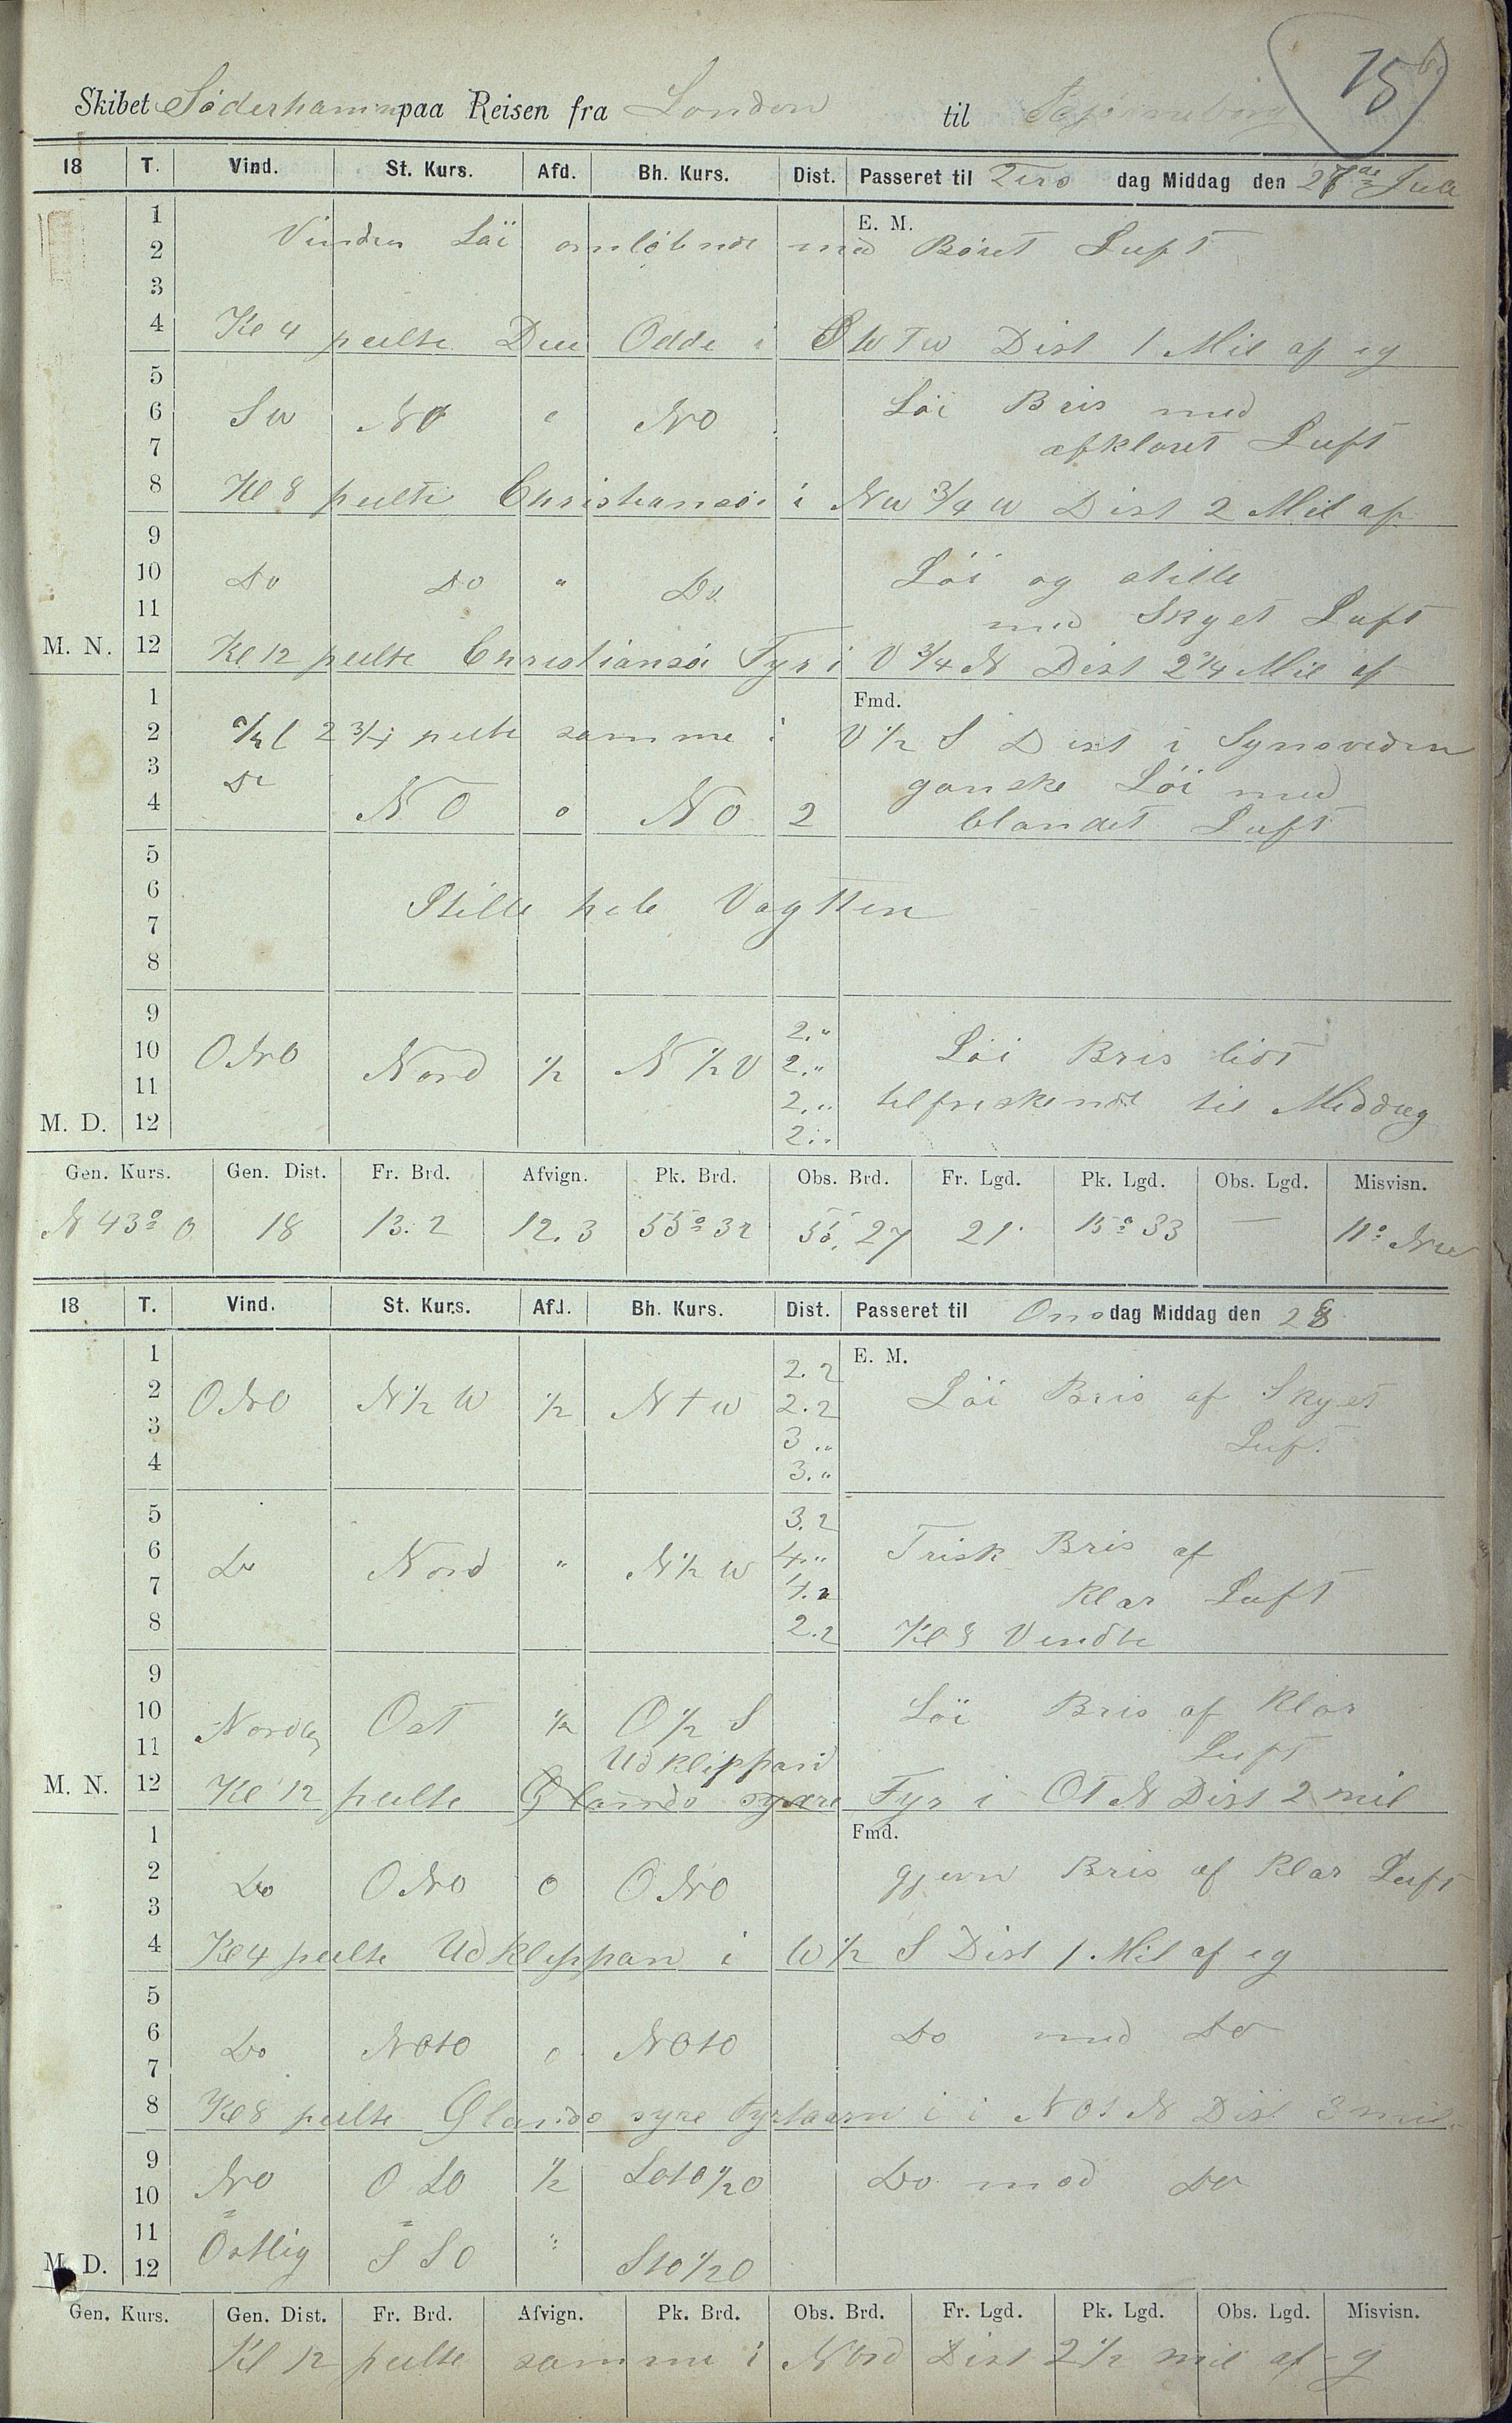 15
Skibet Söderhamn paa Reisen fra London til Bjørneborg
18 T. Vind. St. Kurs. Afd. Bh. Kurs. Dist. Passeret til Tirs dag Middag den 27de Juli
1 E. M.
2 Vinden Löi omløbende med Böiet Luft
3
4 Kl 4 peilte Due Odde i SWTW Dist 1 Mil af eg
5
6 SW NO " NO Löi Bris med
7 afklaret Luft
8 Kl 8 peilte Christiansöi i NW 3/4 W Dist 2 Mil af
9
10 Do Do " Do Löi og stille
11 med Skyet Luft
M. N. 12 Kl 12 peilte Christiansöi Fyr i V 3/4 N Dist 2 1/4 Mil af
1 Fmd.
2 Kl 2 3/4 peilte samme i V 1/2 S Dist i Synsvidden
3 Do ganske Löi med
4 NO 0 NO 2 blandet Luft
5
6 Stille hele Vagtten
7
8
9 2."
10 ONO Nord 1/2 N 1/2 V 2." Löi Bris lidt
11 2." tilfriskende til Middag
M. D. 12 2."
Gen. Kurs. Gen. Dist. Fr. Brd. Afvign. Pk. Brd. Obs. Brd. Fr. Lgd. Pk. Lgd. Obs. Lgd. Misvisn.
N 43° O 18 13.2 12.3 55° 32 55. 27 21' 15° 33 — 11° NW
18 T. Vind. St. Kurs. Afd. Bh. Kurs. Dist. Passeret til Ons dag Middag den 28
1 2.2 E. M.
2 ONO N 1/2 W 1/2 NtW 2.2 Löi Bris af Skyet
3 3." Luft
4 3."
5 3.2
6 Do Nord " N 1/2 W 4." Frisk Bris af
7 4.2 Klar Luft
8 2.2 Kl 8 Vendte
9
10 Nordlig Ost 1/2 O 1/2 S Löi Bris af Klar
11 Udklippan Luft
M. N. 12 Kl 12 peilte Ölands syare Fyr i OTN Dist 2 mil
1 Fmd.
2 Do ONO 0 ONO gjevn Bris af Klar Luft
3
4 Kl 4 peilte Udklippan i W 1/2 S Dist 1 Mil af eg
5
6 Do NOtO 0 NOtO Do med Do
7
8 Kl 8 peilte Ölands syre fyrtaarn i i NOtN Dist 3 mil
9 NO OSO 1/2 SOtO 1/2 O Do med Do
10
11 Östlig SSO " StO 1/2 O
M. D. 12
Gen. Kurs. Gen. Dist. Fr. Brd. Afvign. Pk. Brd. Obs. Brd. Fr. Lgd. Pk. Lgd. Obs. Lgd. Misvisn.
Kl 12 peilte samme i Nord Dist 2 1/2 mil af g